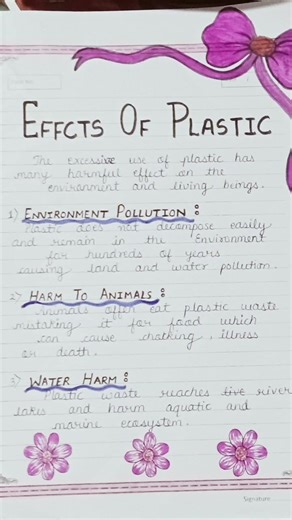 EFFCTS OF PLASTIC
The excessive use of plastic has
many harmful effect on the
environment and living beings.
1) ENVIRONMENT POLLUTION :
Plastic does not decompose easily
and remain in the Environment
for hundreds of years
causing land and water pollution.
2) HARM TO ANIMALS :
Animals often eat plastic waste
mistaking it for food which
can cause chotking, illness
or death.
3) WATER HARM :
Plastic waste reaches live river
lakes and harm aquatic and
marine ecosystem.
Signature